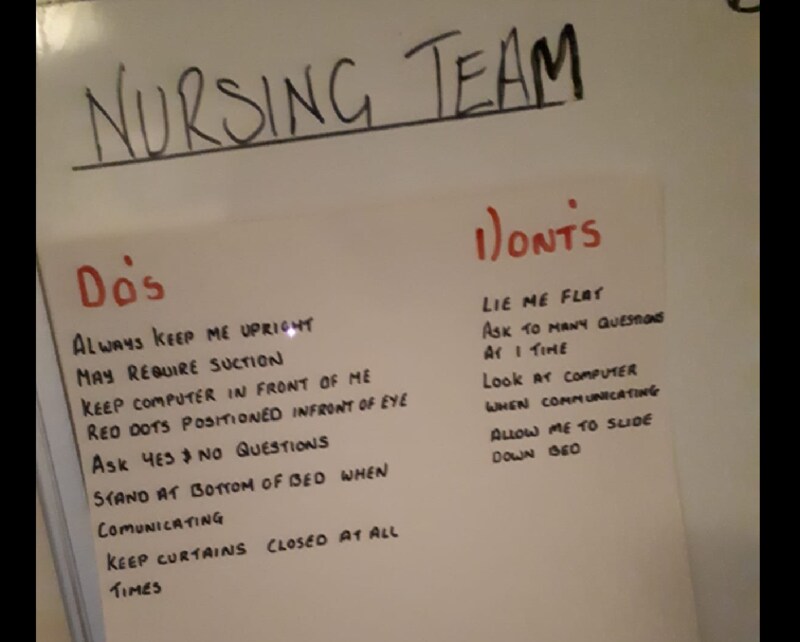 NURSING TEAM
Do's
ALWAYS KEEP ME UPRIGHT
MAY REQUIRE SUCTION
KEEP COMPUTER IN FRONT OF ME
RED DOTS POSITIONED INFRONT OF EYE
ASK YES & NO QUESTIONS
STAND AT BOTTOM OF BED WHEN
COMUNICATING
KEEP CURTAINS CLOSED AT ALL
TIMES
DONT'S
LIE ME FLAT
ASK TO MANY QUESTIONS
AT 1 TIME
LOOK AT COMPUTER
WHEN COMMUNICATING
ALLOW ME TO SLIDE
DOWN BED